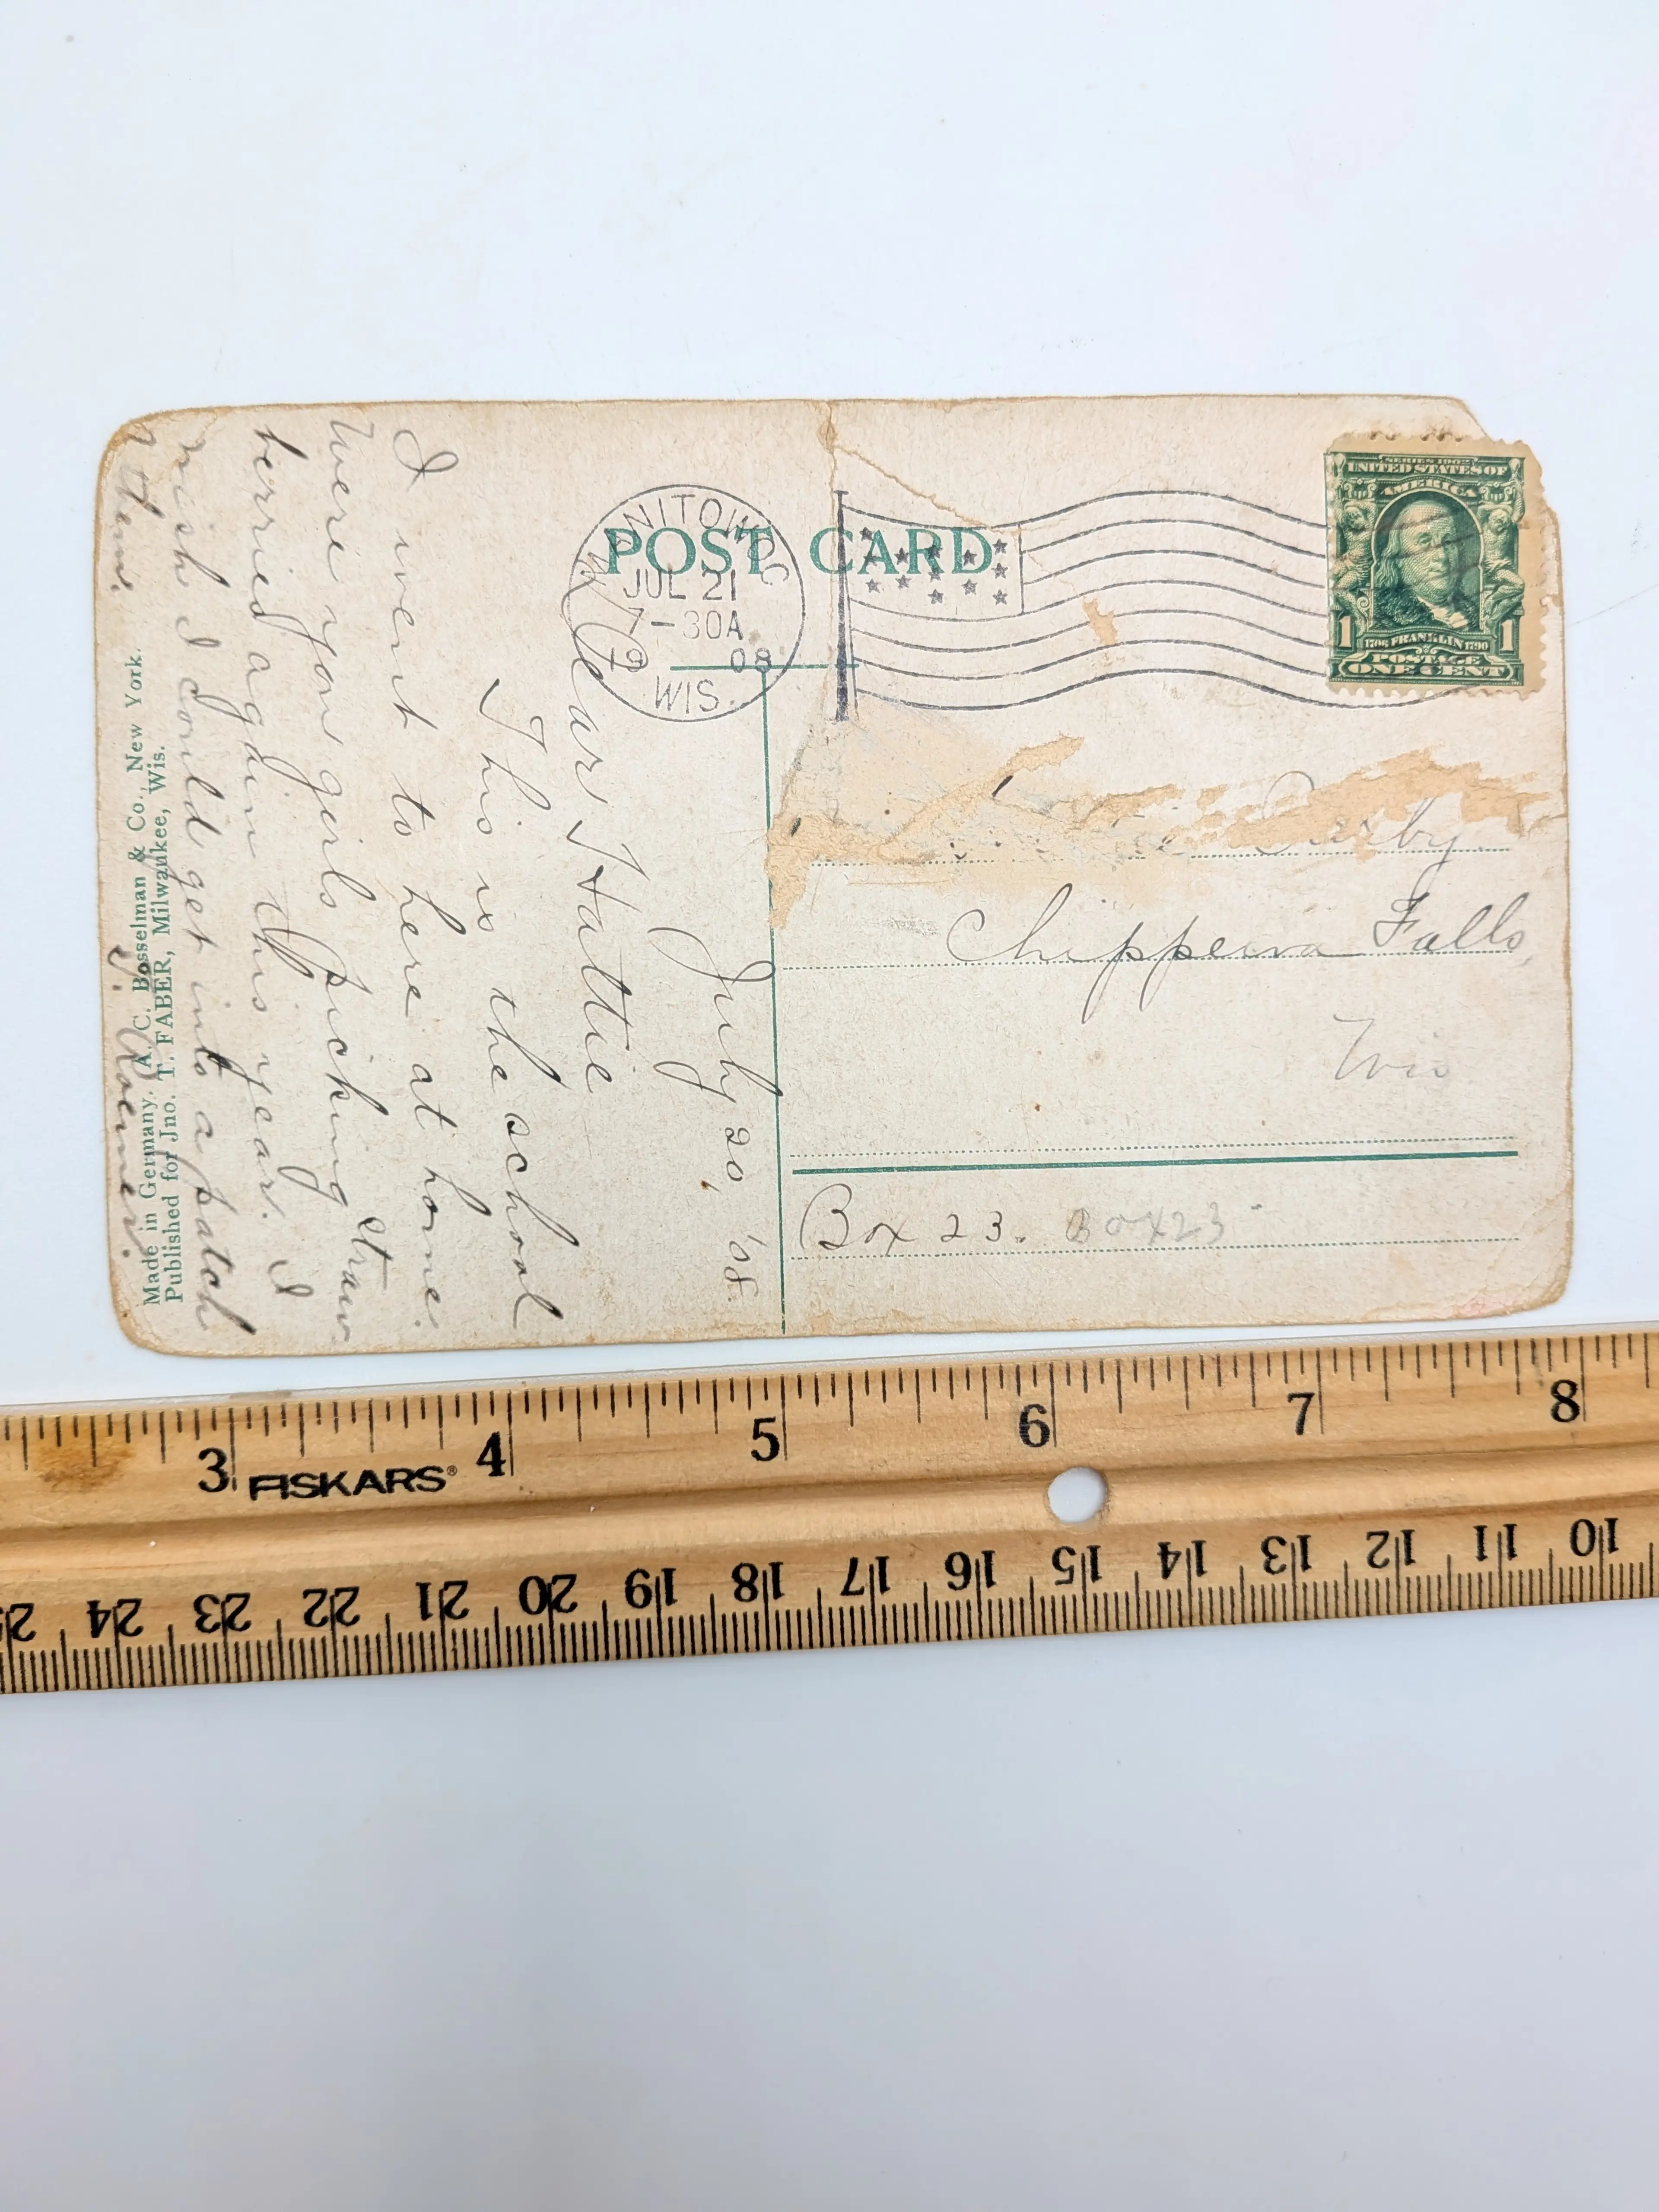 POST CARD
MANITOWOC
JUL 21
7-30A
08
WIS.
SERIES 1902
UNITED STATES OF
AMERICA
1 1
1706 FRANKLIN 1790
POSTAGE
ONE CENT
July 20, '08.
Dear Hattie
This is the school
I went to here at home.
Were you girls picking straw
berries again this year. I
wish I could get into a patch
of them.
Made in Germany. A. C. Bosselman & Co., New York.
Published for Jno. T. FABER, Milwaukee, Wis.
Chippewa Falls,
Wis
Box 23. Box 23
3 4 5 6 7 8
FISKARS®
10 11 12 13 14 15 16 17 18 19 20 21 22 23 24